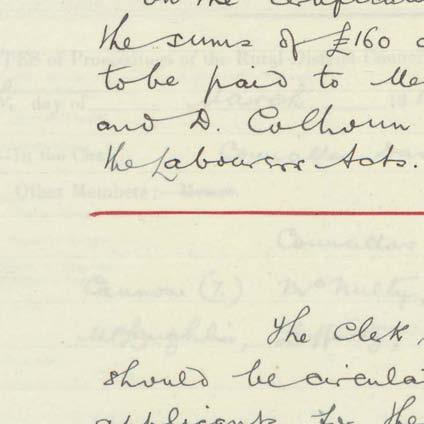 on the certificate
the sums of £160
to be paid to
and D. Colhoun
the Labourers Acts.
The Clerk
should be circula
applicants for the